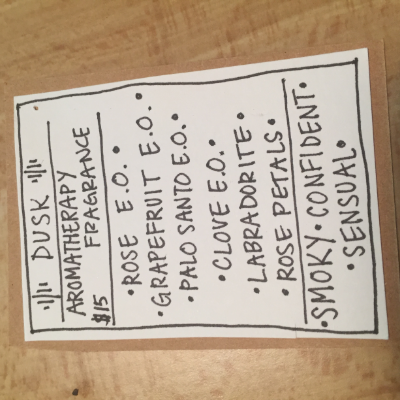 DUSK
AROMATHERAPY
$15 FRAGRANCE
• ROSE E.O. •
• GRAPEFRUIT E.O. •
• PALO SANTO E.O. •
• CLOVE E.O. •
• LABRADORITE •
• ROSE PETALS •
• SMOKY • CONFIDENT •
• SENSUAL •